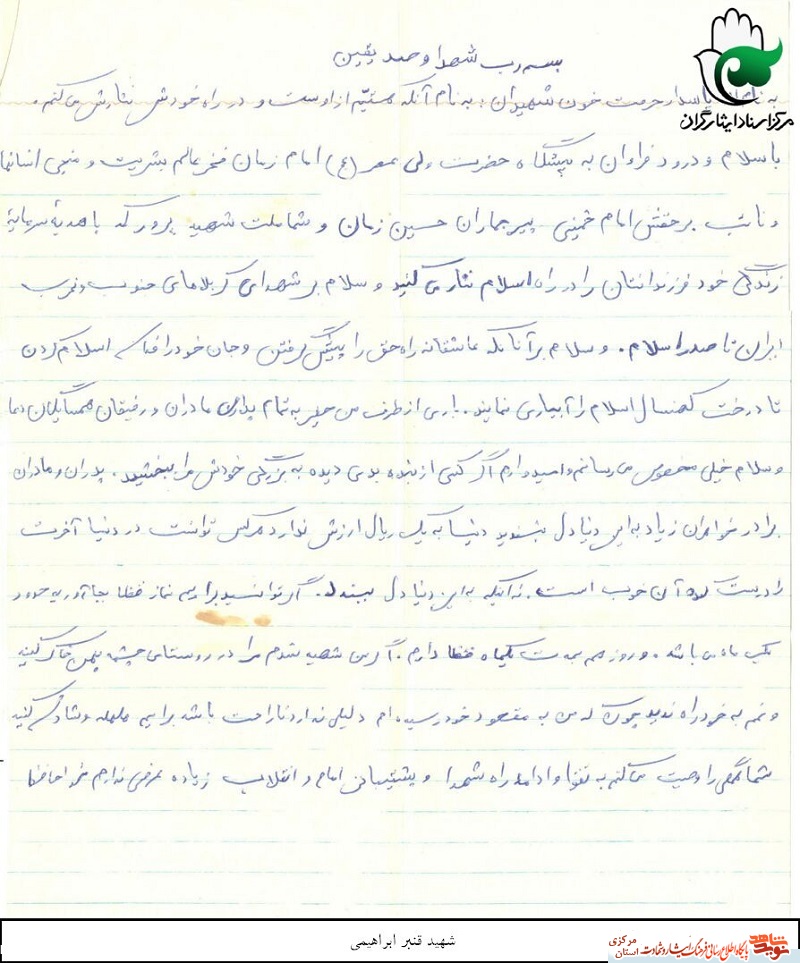 بسم رب شهدا و صدیقین
به نام پاسدار حرمت خون شهیدان، به نام آنکه هستیم از اوست و در راه خودش نثارش می کنم
مرکز اسناد ایثارگران
با سلام و درود فراوان به پیشگاه حضرت ولی عصر (عج) امام زمان فخر عالم بشریت و منجی انسانها
و نائب برحقش امام خمینی پیر جماران حسین زمان و شما ملت شهید پرور که با هدیهٔ سرمایهٔ
زندگی خود فرزندانتان را در راه اسلام نثار می کنید و سلام بر شهدای کربلاهای جنوب و غرب
ایران تا صدر اسلام. و سلام بر آنانکه عاشقانه راه حق را پیش گرفتن و جان خود را فدای اسلام کردن
تا درخت کهنسال اسلام را آبیاری نمایند. باری از طرف من حقیر به تمام پدران مادران و رفیقان همسایگان دعا
و سلام خیلی مخصوص می رسانم و امیدوارم اگر کسی از بنده بدی دیده به بزرگی خودش مرا ببخشید. پدران و مادران
برادر خواهران زیاد به این دنیا دل نبندید دنیا به یک ریال ارزش ندارد هرکس توانست در دنیا آخرت
را درست کند آن خوب است. نه اینکه به این دنیا دل ببندد. اگر توانستید برایم نماز قضا بجا آورید حدود
یک ماه می باشد. و روزه هم به مدت یکماه قضا دارم. اگر من شهید شدم مرا در روستای چشمه خاک کنید
و غم به خود راه ندهید چون که من به مقصود خود رسیده ام دلیلی ندارد ناراحت باشد برایم هلهله و شادی کنید
شما همگی را وصیت می کنم به تقوا و ادامه راه شهدا و پشتیبانی امام و انقلاب زیاده عرضی ندارم خداحافظ
شهید قنبر ابراهیمی
نوید شاهد
پایگاه اطلاع رسانی فرهنگ ایثار و شهادت استان مرکزی